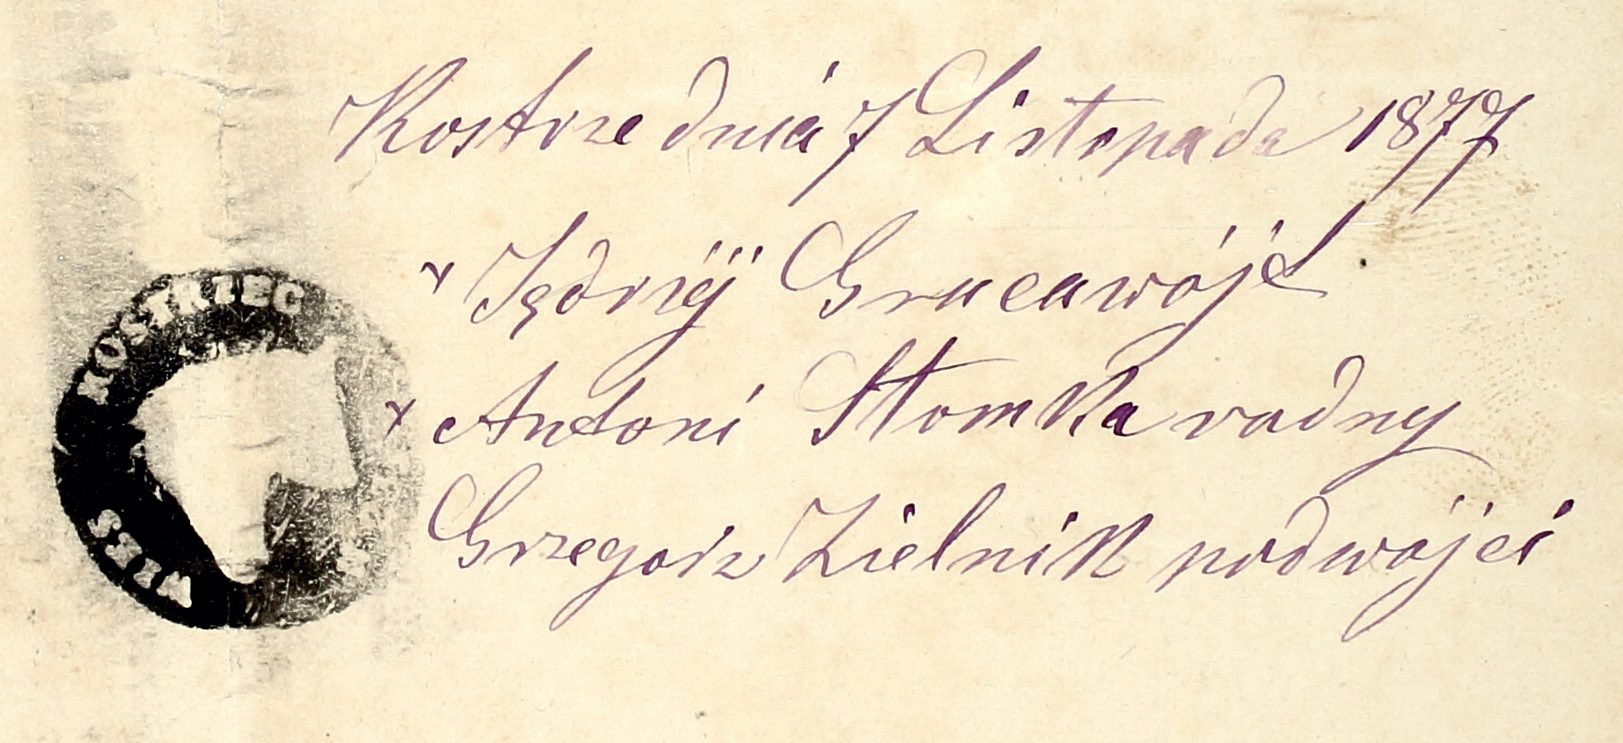 Kostrze dnia 7 Listopada 1877
x Jędrzij Gruca wójt
x Antoni Słomka radny
Grzegorz Zielnik podwójci
KOSTRZEC
WIES